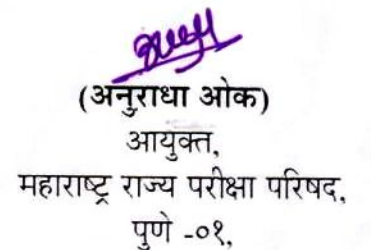 (अनुराधा ओक)
आयुक्त,
महाराष्ट्र राज्य परीक्षा परिषद,
पुणे -०१,